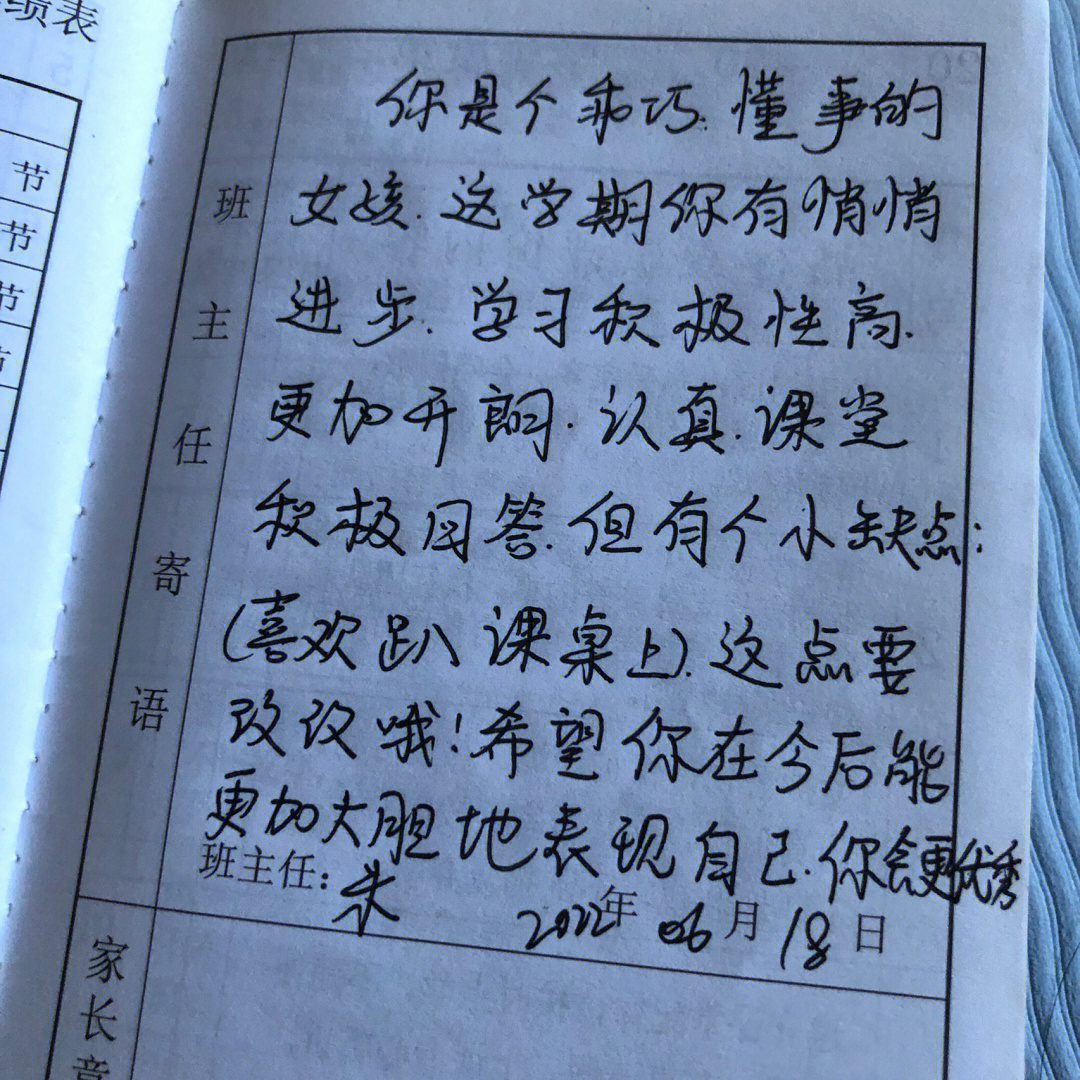 绩表
节
节
节
节
班主任寄语
你是个乖巧.懂事的
女孩.这学期你有悄悄
进步.学习积极性高.
更加开朗.认真.课堂
积极回答.但有个小缺点:
(喜欢趴课桌上).这点要
改改哦!希望你在今后能
更加大胆地表现自己.你会更优秀
班主任:
2022年06月18日
家长意